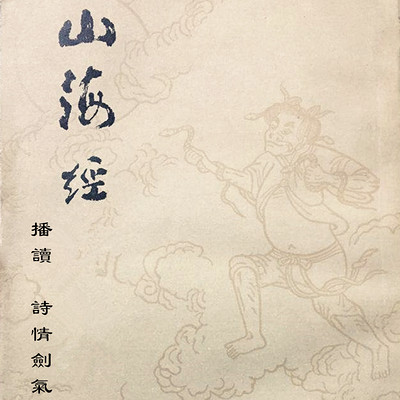 山海經
播讀 詩情劍氣